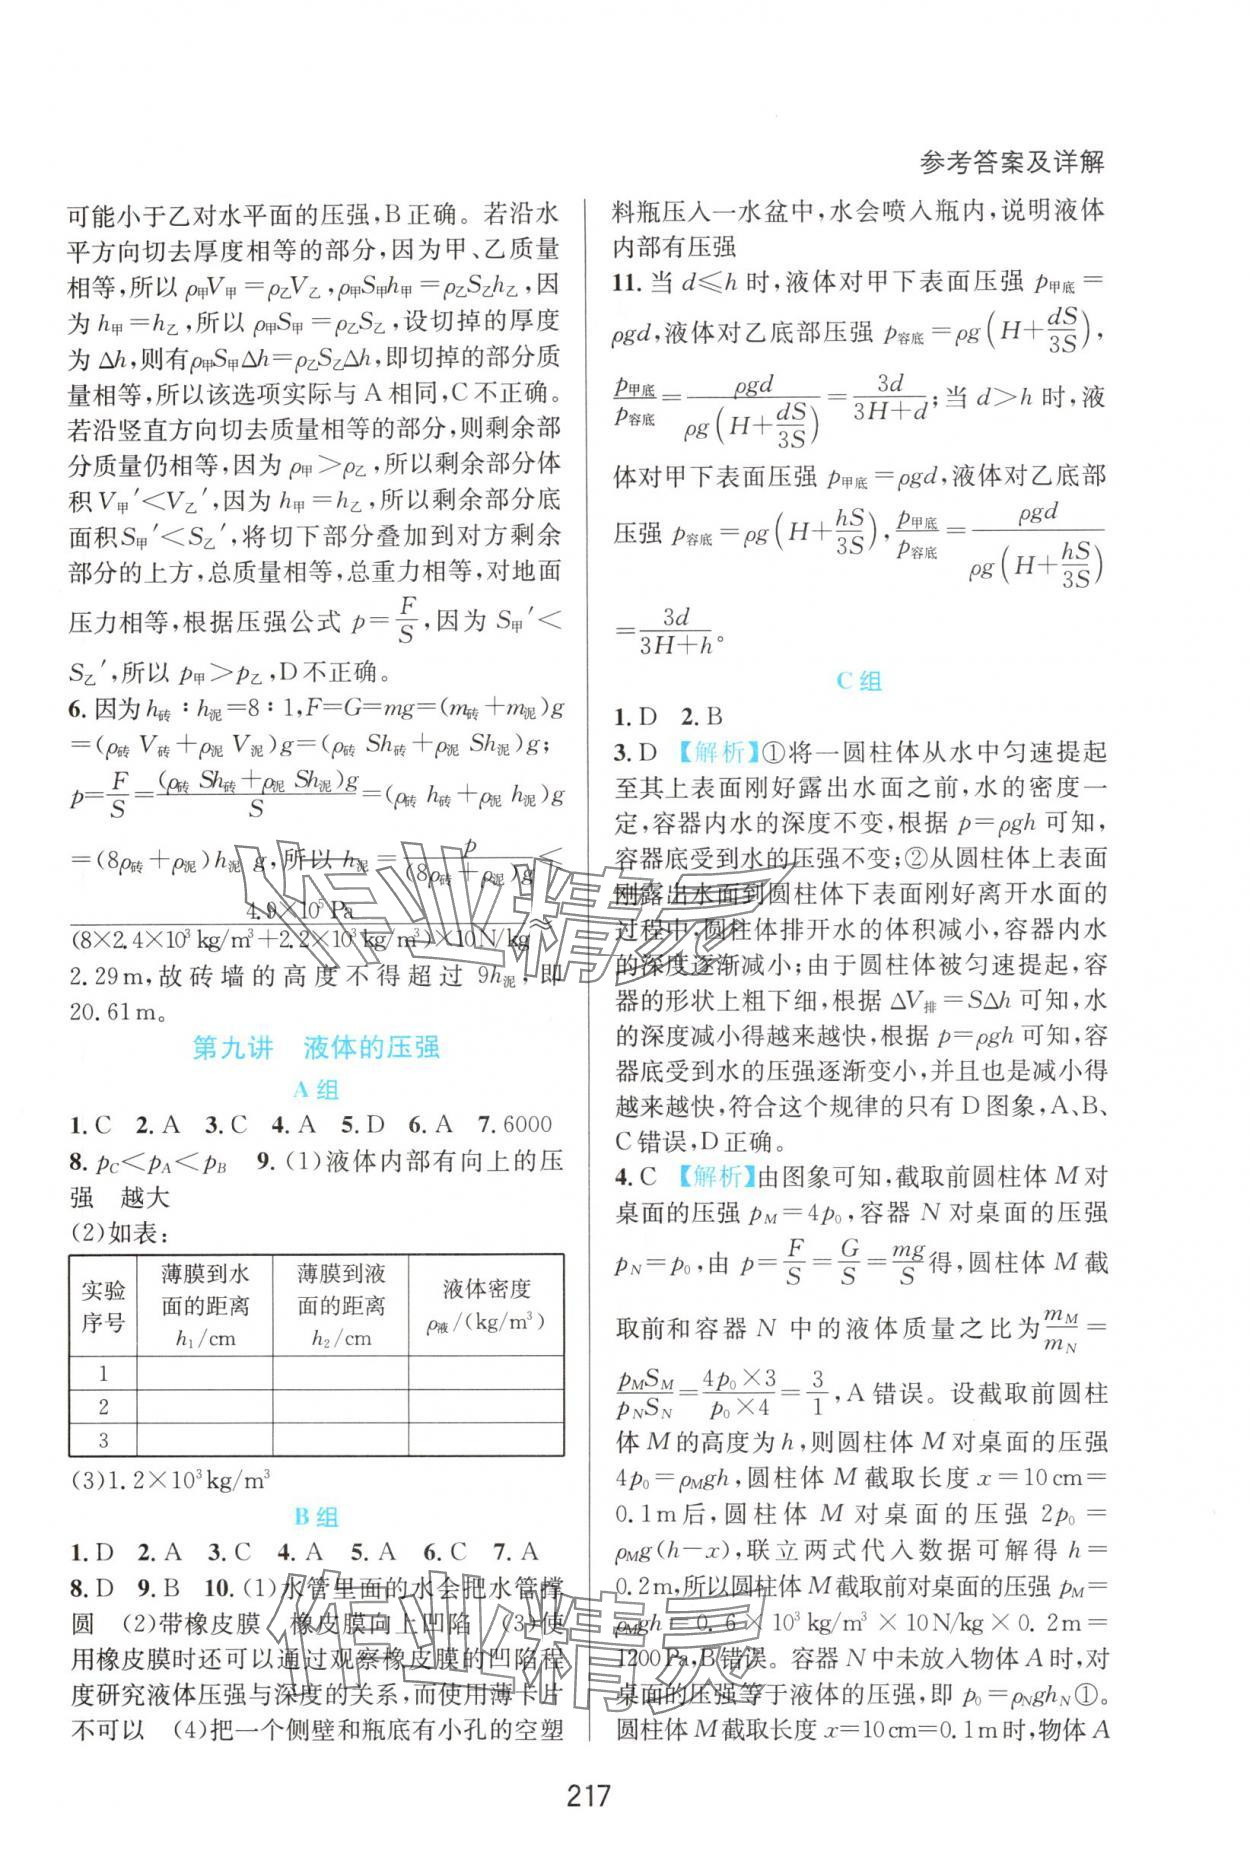 参考答案及详解
可能小于乙对水平面的压强,B正确。若沿水
平方向切去厚度相等的部分,因为甲、乙质量
相等,所以ρ甲V甲=ρ乙V乙,ρ甲S甲h甲=ρ乙S乙h乙,因
为h甲=h乙,所以 ρ甲S甲=ρ乙S乙,设切掉的厚度
为Δh,则有ρ甲S甲Δh=ρ乙S乙Δh,即切掉的部分质
量相等,所以该选项实际与A相同,C不正确。
若沿竖直方向切去质量相等的部分,则剩余部
分质量仍相等,因为ρ甲>ρ乙,所以剩余部分体
积V甲′<V乙′,因为h甲=h乙,所以剩余部分底
面积S甲′<S乙′,将切下部分叠加到对方剩余
部分的上方,总质量相等,总重力相等,对地面
压力相等,根据压强公式 p=F/S,因为 S甲′<
S乙′,所以 p甲>p乙,D不正确。
6.因为h砖∶h泥=8∶1,F=G=mg=(m砖+m泥)g
=(ρ砖V砖+ρ泥V泥)g=(ρ砖Sh砖+ρ泥Sh泥)g;
p=F/S=(ρ砖Sh砖+ρ泥Sh泥)g/S=(ρ砖h砖+ρ泥h泥)g
=(8ρ砖+ρ泥)h泥g,所以h泥=p/(8ρ砖+ρ泥)g<
4.9×10⁵Pa/(8×2.4×10³kg/m³+2.2×10³kg/m³)×10N/kg≈
2.29m,故砖墙的高度不得超过9h泥,即
20.61m。
第九讲 液体的压强
A组
1.C 2.A 3.C 4.A 5.D 6.A 7.6000
8.pC<pA<pB 9.(1)液体内部有向上的压
强 越大
(2)如表:
实验序号 薄膜到水面的距离h₁/cm 薄膜到液面的距离h₂/cm 液体密度ρ液/(kg/m³)
1
2
3
(3)1.2×10³kg/m³
B组
1.D 2.A 3.C 4.A 5.A 6.C 7.A
8.D 9.B 10.(1)水管里面的水会把水管撑
圆 (2)带橡皮膜 橡皮膜向上凹陷 (3)使
用橡皮膜时还可以通过观察橡皮膜的凹陷程
度研究液体压强与深度的关系,而使用薄卡片
不可以 (4)把一个侧壁和瓶底有小孔的空塑
料瓶压入一水盆中,水会喷入瓶内,说明液体
内部有压强
11.当d≤h时,液体对甲下表面压强p甲底=
ρgd,液体对乙底部压强p容底=ρg(H+dS/3S),
p甲底/p容底=ρgd/ρg(H+dS/3S)=3d/3H+d;当d>h时,液
体对甲下表面压强p甲底=ρgd,液体对乙底部
压强p容底=ρg(H+hS/3S),p甲底/p容底=ρgd/ρg(H+hS/3S)
=3d/3H+h。
C组
1.D 2.B
3.D 【解析】①将一圆柱体从水中匀速提起
至其上表面刚好露出水面之前,水的密度一
定,容器内水的深度不变,根据p=ρgh可知,
容器底受到水的压强不变;②从圆柱体上表面
刚露出水面到圆柱体下表面刚好离开水面的
过程中,圆柱体排开水的体积减小,容器内水
的深度逐渐减小;由于圆柱体被匀速提起,容
器的形状上粗下细,根据ΔV排=SΔh可知,水
的深度减小得越来越快;根据p=ρgh可知,容
器底受到水的压强逐渐变小,并且也是减小得
越来越快,符合这个规律的只有D图象,A、B、
C错误,D正确。
4.C 【解析】由图象可知,截取前圆柱体M对
桌面的压强pM=4p₀,容器N对桌面的压强
pN=p₀,由p=F/S=G/S=mg/S得,圆柱体M截
取前和容器N中的液体质量之比为mM/mN=
pMSM/pNSN=4p₀×3/p₀×4=3/1,A错误。设截取前圆柱
体M的高度为h,则圆柱体M对桌面的压强
4p₀=ρMgh,圆柱体M截取长度x=10cm=
0.1m后,圆柱体M对桌面的压强2p₀=
ρMg(h-x),联立两式代入数据可解得h=
0.2m,所以圆柱体M截取前对桌面的压强pM=
ρMgh=0.6×10³kg/m³×10N/kg×0.2m=
1200Pa,B错误。容器N中未放入物体A时,对
桌面的压强等于液体的压强,即p₀=ρNghN①。
圆柱体M截取长度x=10cm=0.1m时,物体A
217
作业精灵
作业精灵